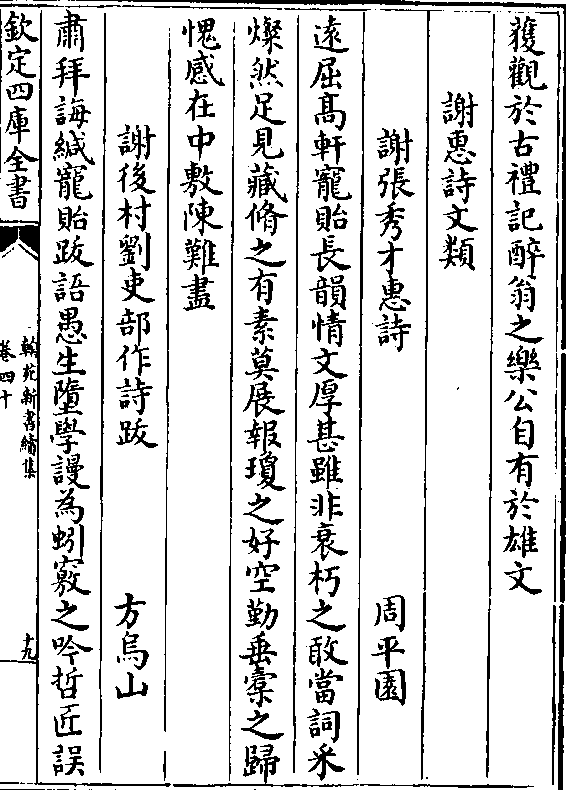 䕶觀於古禮記醉翁之樂公自有於雄文
謝惠詩文類
謝張秀才惠詩　周平園
逺屈髙軒寵貽長韻情文厚甚雖非衰朽之敢當詞采
燦然足見藏脩之有素莫展報瓊之好空勤垂橐之歸
愧感在中敷陳難盡
謝後村劉吏部作詩跋　方烏山
肅拜誨緘寵貽跋語愚生墮學謾為蚓竅之吟哲匠誤
欽定四庫全書
翰苑新書續集
卷四十
十九